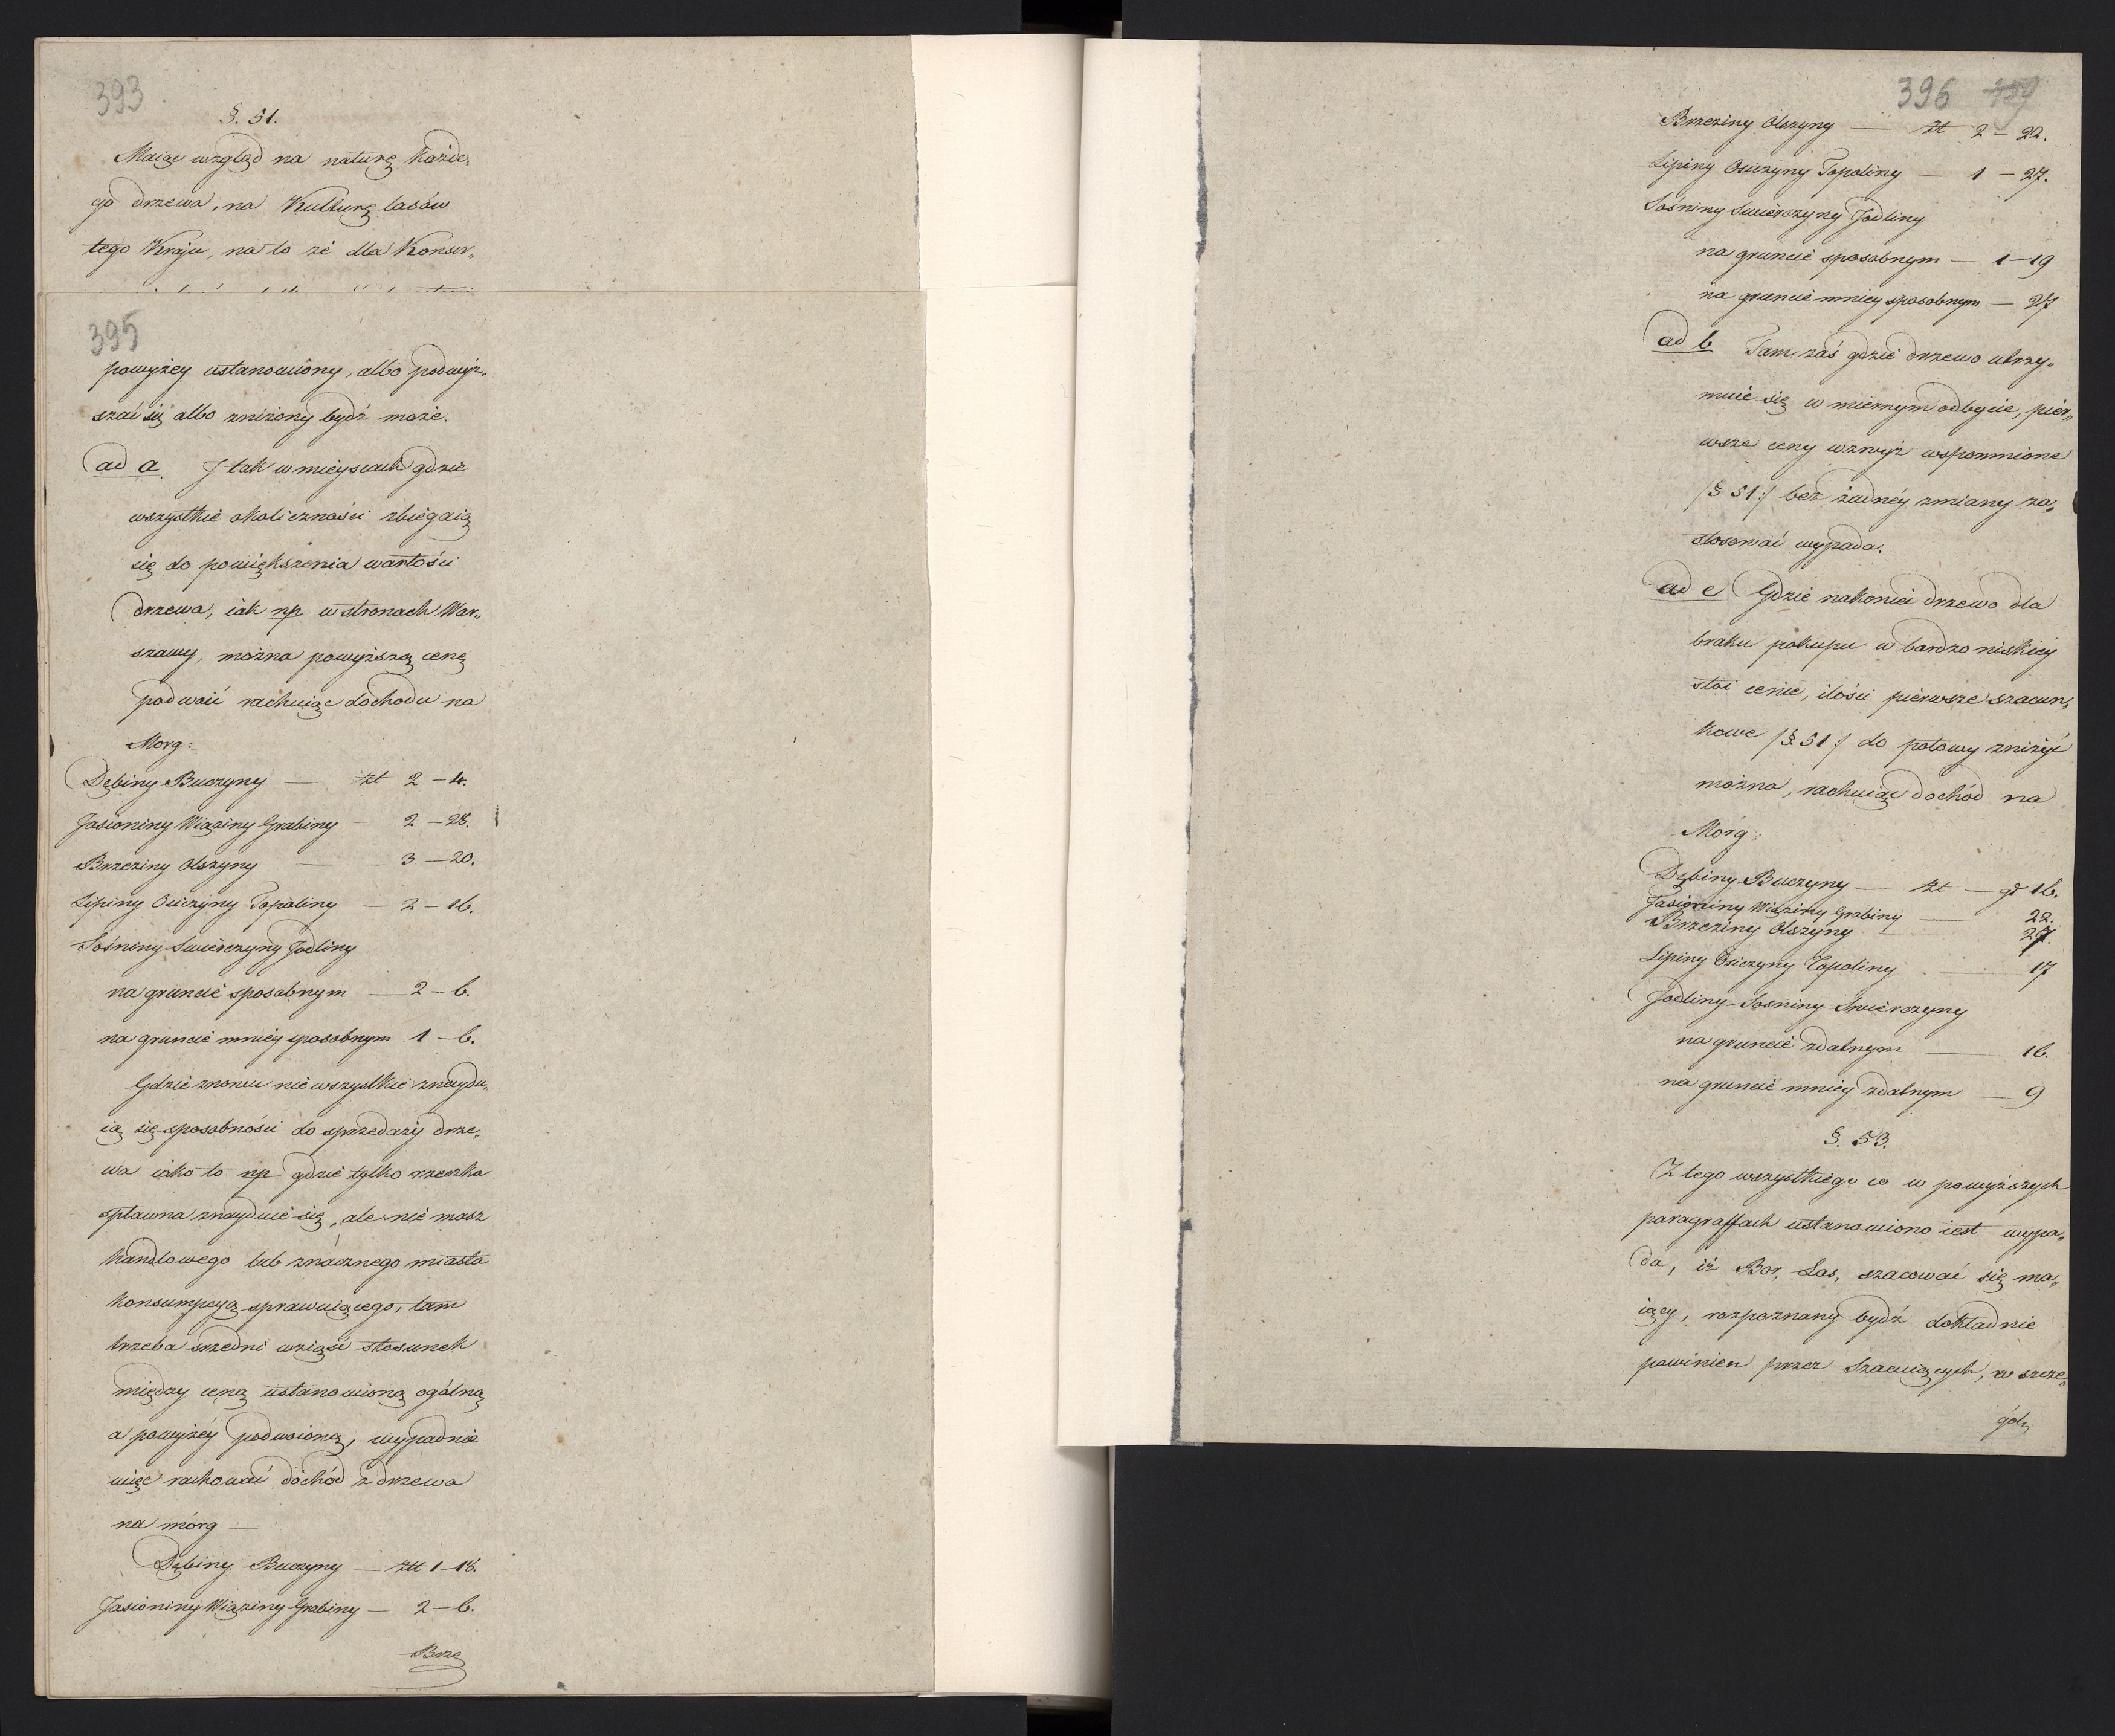 393
§. 51.
Maiąc wzgląd na naturę każde„
go drzewa, na Kulturę lasów
tego Kraju, na to że dla Konser„
395
powyżey ustanowiony, albo podwyż„
szać się albo zniżony bydź może.
ad a. J tak w mieyscach gdzie
wszystkie okoliczności zbiegaią
się do powiększenia wartości
drzewa, iak np w stronach War„
szawy, można powyższą cenę
podwoić rachuiąc dochodu na
Morg:
Dębiny Buczyny — zł 2 – 4.
Jasioniny Wiąziny Grabiny — 2 – 28.
Brzeziny Olszyny — 3 – 20.
Lipiny Osiczyny Topoliny — 2 – 16.
Sośniny Swierczyny Jodliny
na gruncie sposobnym — 2 – 6.
na gruncie mniey sposobnym 1 – 6.
Gdzie znowu nie wszystkie znaydu„
ią się sposobności do sprzedaży drze„
wa iako to np gdzie tylko rzeczka
spławna znayduie się, ale nie masz
handlowego lub znacznego miasta
konsumpcyą sprawuiącego, tam
trzeba srzedni wziąść stosunek
między ceną ustanowioną ogólną
a powyżéy podwoioną, wypadnie
więc rachować dochód z drzewa
na mórg —
Dębiny Buczyny — złł 1 – 18.
Jasioniny Wiąziny Grabiny — 2 – 6.
Brze
396
Brzeziny Olszyny — zł 2 – 22.
Lipiny Osiczyny Topoliny — 1 – 27.
Sośniny Swierczyny Jodliny
na gruncie sposobnym — 1 – 19
na gruncie mniey sposobnym — 27
ad b Tam zaś gdzie drzewo utrzy„
muie się w miernym odbycie, pier„
wsze ceny wzwyż wspomnione
/§ 51:/ bez żadnéy zmiany za„
stosować wypada.
ad c Gdzie nakoniec drzewo dla
braku pokupu w bardzo niskiey
stoi cenie, ilości pierwsze szacun„
kowe /§. 51:/ do połowy zniżyć
można, rachuiąc dochód na
Mórg:
Dębiny Buczyny — zł — gr 16.
Jasioniny Wiąziny Grabiny — 22.
Brzeziny Olszyny — 27.
Lipiny Osiczyny Topoliny — 17
Jodliny Sosniny Swierczyny
na gruncie zdatnym — 16.
na gruncie mniey zdatnym — 9
§. 53.
Z tego wszystkiego co w powyższych
paragraffach ustanowiono iest wypa„
da, iż Bor, Las, szacować się ma„
iący, rozpoznany bydź dokładnie
powinien przez Szacuiących, w szcze„
gól„